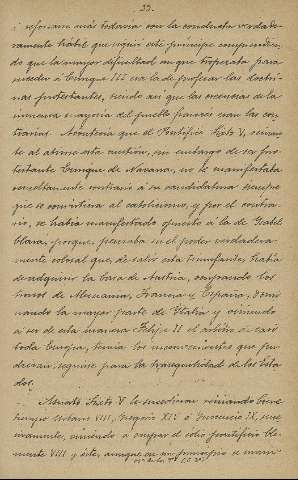 33.
i reforzaria más todavia con la conducta verdade-
ramente hábil que seguia este príncipe comprendien-
do que la mayor dificultad en que tropezaba para
suceder á Enrique III era la de profesar las doctri-
nas protestantes, siendo asi que las creencias de la
inmensa mayoria del pueblo frances eran las con-
trarias. Además que el Pontífice Sixto V,
te al ánimo esta cuestión, sin embargo de ser pro-
testante Enrique de Navarra, no se manifestaba
resueltamente contrario á su candidatura siempre
que se convirtiera al catolicismo, y por el contra-
rio, se habia manifestado opuesto á la de Isabel
Clara, porque, pensaba en el poder verdadera-
mente colosal que, de salir esta triunfante, habia
de adquirir la casa de Austria, ocupando los
tronos de Alemania, Francia y España, domi-
nando la mayor parte de Italia y viniendo
á ser de esta manera Felipe II el árbitro de casi
toda Europa, temia los inconvenientes que pu-
dieran seguirse para la tranquilidad de los Esta-
dos.
Muerto Sixto V le sucedieron reinando breve
tiempo Urbano VIII, Gregorio XIV é Inocencio IX, suce-
sivamente, viniendo á ocupar el solio pontificio Cle-
mente VIII y éste, aunque en un principio se mani-